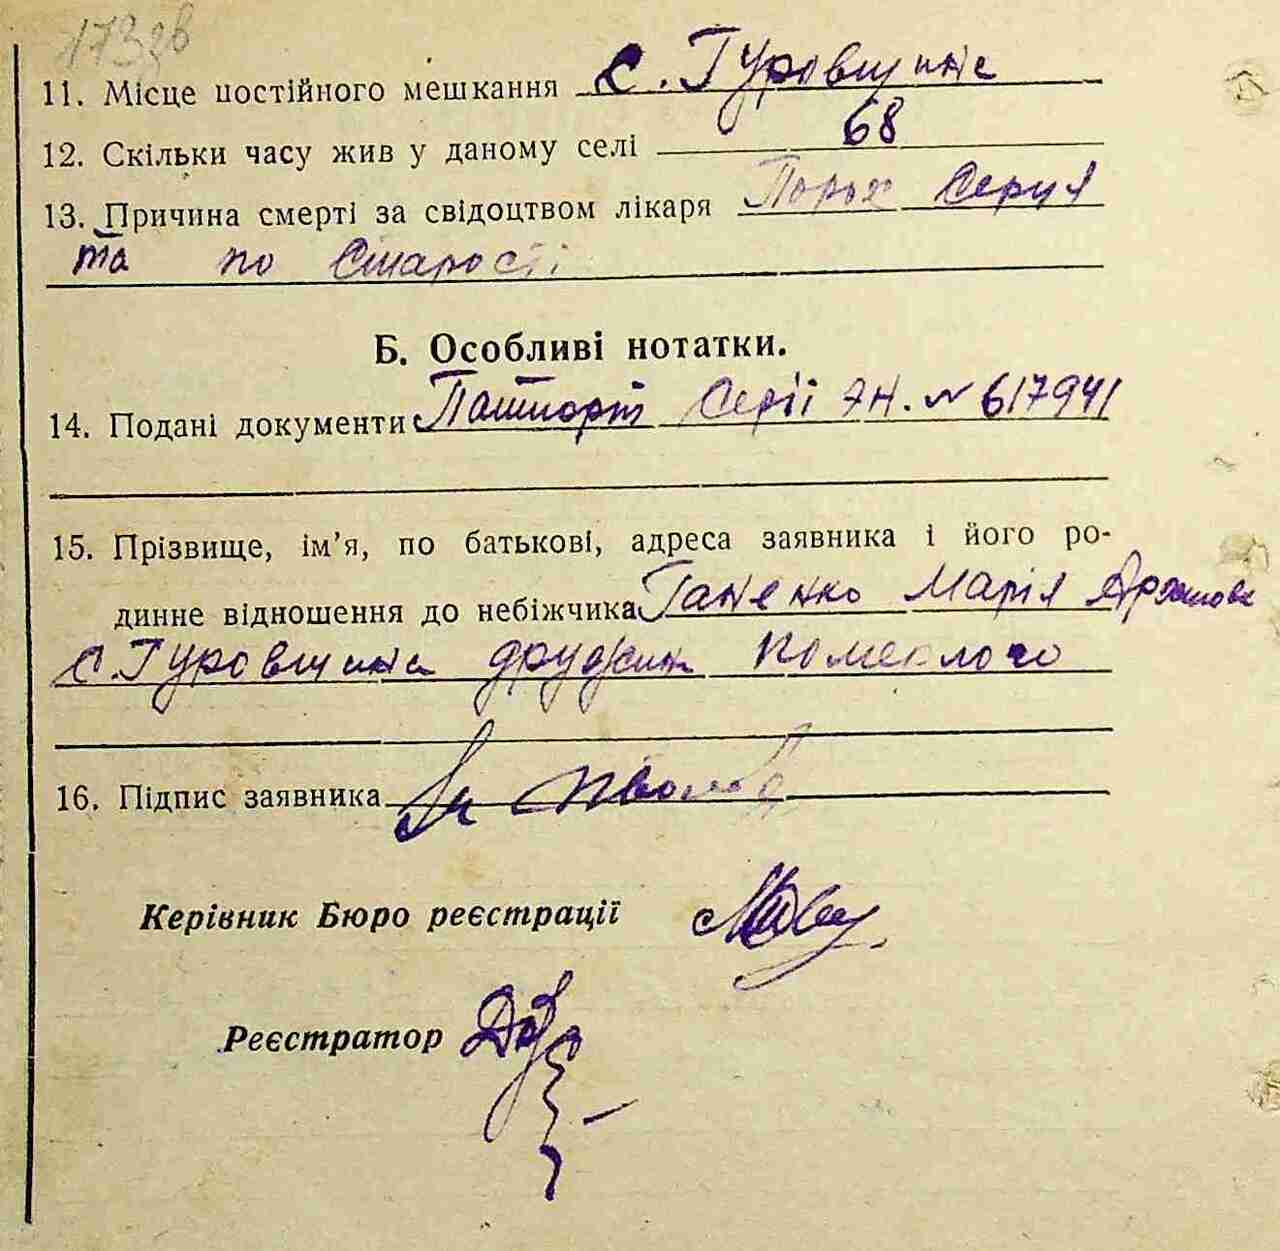 173зв
11. Місце постійного мешкання с. Гуровщина
12. Скільки часу жив у даному селі 68
13. Причина смерті за свідоцтвом лікаря Порок Серця
та по Старості
Б. Особливі нотатки.
14. Подані документи Пашпорт Серії ЯН. № 617941
15. Прізвище, ім’я, по батькові, адреса заявника і його ро-
динне відношення до небіжчика Ганенко Марія
с. Гуровщина дружина померлого
16. Підпис заявника
Керівник Бюро реєстрації
Реєстратор